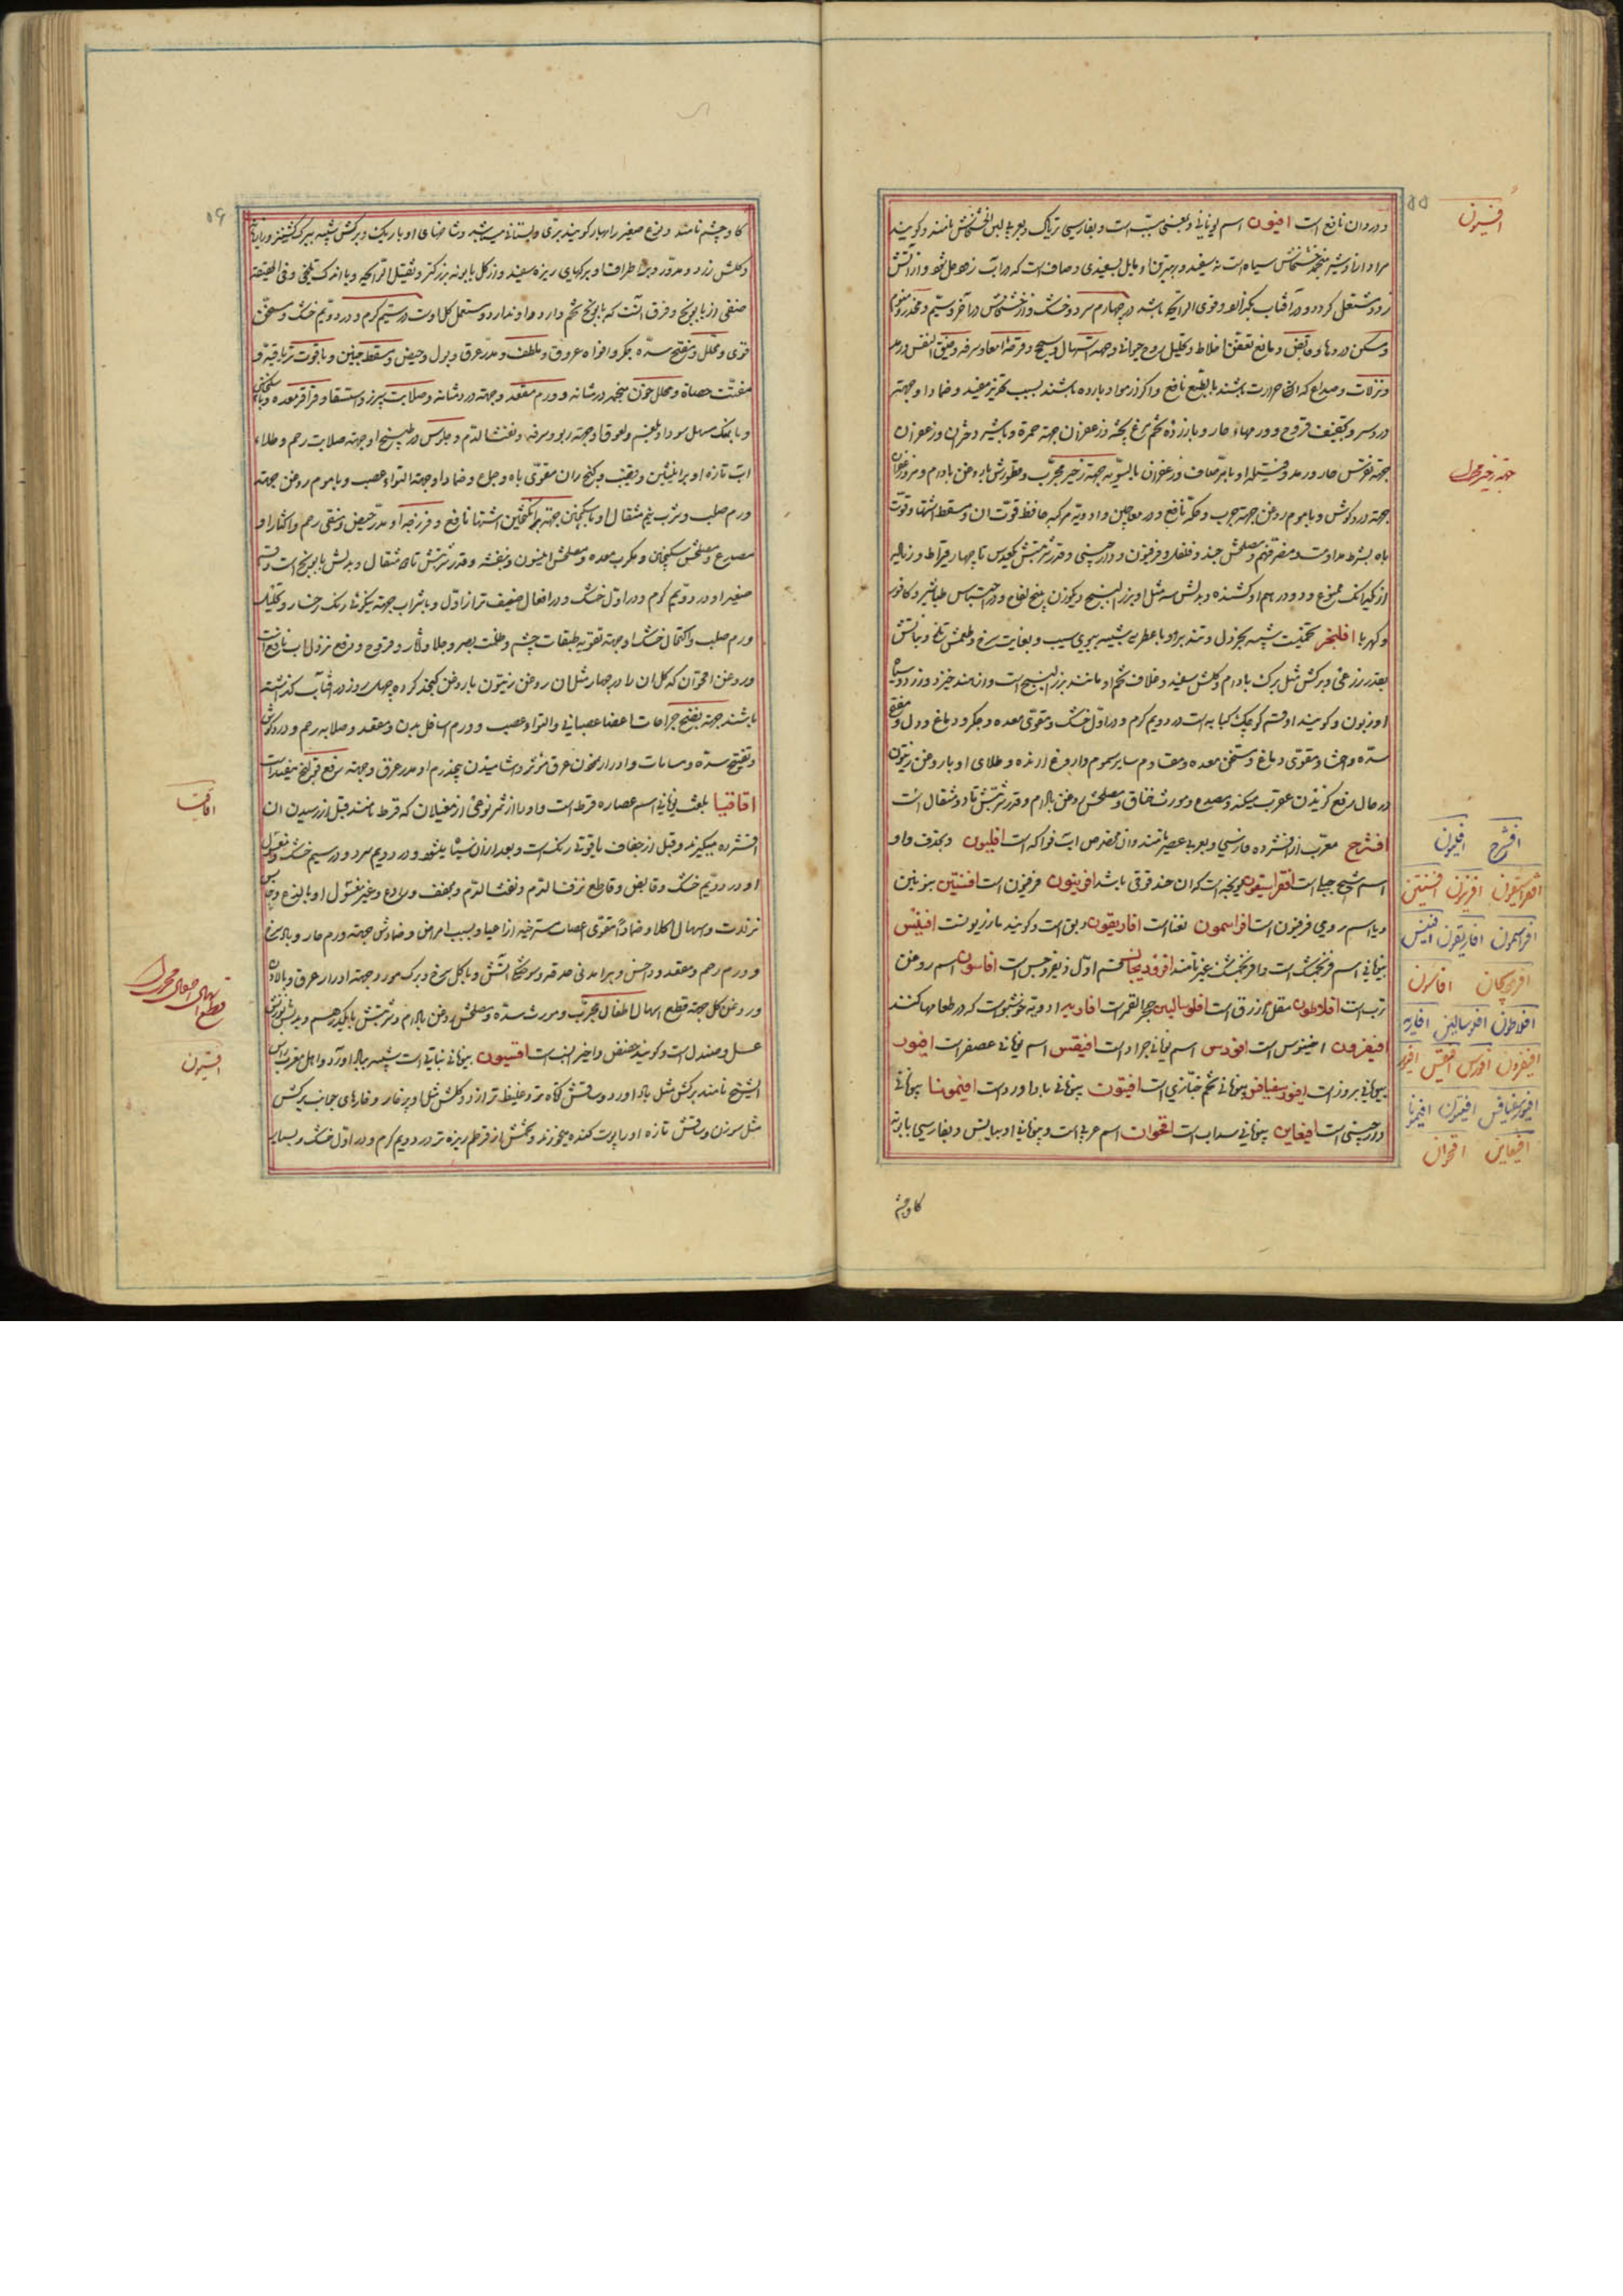 و در دوران نافع است افیون اسم یونانی و بمعنی مسبت است و بفارسی تریاک و بعربی لبن الخشخاش نامند و کویند
مراد از او شیر منجمد خشخاش سیاه است نه سفید و بهترین او مایل بسفیدی و صاف است که در آب زود حل شود و از آتش
زود مشتعل کردد و در آفتاب بکدازد و قوی الرایحه باشد در چهارم سرد و خشک و از خشخاش در آخر سیّم و مخدر و منوم
و مسکن دردها و قابض و مانع تعفن اخلاط و تحلیل روح حیوانی و جهة اسهال و سحج و قرحه امعا و سرفه و ضیق النفس
و نزلات و صداع که از حرارت باشند بالطبع نافع و اکر از مواد بارده باشند بسبب تخدیر مفید و ضماد او جهته
درد سر و تجفیف قروح و ورمهاء حار و با زرده تخم مرغ پخته و زعفران جهته حمره و با شیر دختران و زعفران
جهته نقرس حار و رمد و فتیله او با مرّ صاف و زعفران بالسویه جهته زحیر مجرّب و قطورش با روغن بادام و مر و زعفران
جهته درد کوش و با موم روغن جهته جرب و حکه نافع و در معاجین و ادویهٔ مرکبه حافظ قوت آن و مسقط اشتها و قوت
باه بشرط مداومت و مضر فهم و مصلحش جند و فلفل و فرفیون و دارچینی و قدر شربتش تا چهار قیراط و زیاده
از یکدانک ممنوع و دو درهم او کشنده و بدلش سه مثل او بزر البنج و یکوزن بیخ لفاح و در احتباس طباشیر و کافور
و کهربا افلنجه تخمیست شبیه بخردل و تندبو و با عطریه شبیه ببوی سیب و بغایت سرخ و طعمش تلخ و نباتش
بقدر زرعی و برکش مثل برک بادام و کلش سفید و غلاف تخم او مانند بزر البنج است و از هند خیزد و زرد و سیاه
او زبون و کویند او قسم کوچک کبابه است در دویم کرم و در اول خشک و مقوی معده و جکر و دماغ و دل و مفتح
سدّه و احشا و مقوی دماغ و مسخن معده و مقاوم سایر سموم و آروغ آرنده و طلای او با روغن زیتون
در حال رفع کزیدن عقرب میکند و مصدع و مورث خناق و مصلحش روغن بادام و قدر شربتش تا دو مثقال است
افشرج معرب از افشرده فارسی و بعربی عصیر نامند و ان مخصوص آب فواکه است افلیون و بحذف واو
اسم شیح جبلی است افقراسیقون یونجه است که ان حندقوقی باشد افربیون فرفیون است افنتین بنونین
و یا اسم رومی فرفیون است افراسمون نغنا است افاریقون ربق است و کویند مازریونست افیئس
بیونانی اسم فرنجمشک است و افرنجمشک نیز نامند افرودیجانس قسم اول ذیفروجس است افاسون اسم روغن
ترب است افلاطون مقل ازرق است افلوسالینس حجر القمر است افادیه ادویه خوشبوست که در طعامها کنند
افیقرون اخینوس است افودس اسم یونانی جراد است افیقس اسم یونانی عصفر است افیوب
بیونانی بروز است افیوسفیافس بیونانی تخم خبازی است افیتون بیونانی باداورد است افیمونیا بیونانی
دارچینی است افیغاین بیونانی سداب است اقحوان اسم عربی است و بیونانی اربیانس و بفارسی بابونه
کاوچشم
افیون
جهته زحیر مجرب
افشرج افلیون
افقراسیقون افربیون افنتین
افراسمون افاریقون افیئس
افرودیجانس افاسون
افلاطون افلوسالینس افادیه
افیقرون افودس افیقس افیوب
افیوسفیافس افیتون افیمونیا
افیغاین اقحوان
۵۵
۵۶
کاوچشم نامند و نوع صغیر را بهار کویند برّی و بستانی میباشد و شاخهای او باریک و برکش شبیه ببرک کشنیز
و کلش زرد و مدوّر و بر اطراف او برکهای ریزه سفید و از کل بابونه بزرکتر و ثقیل الرایحه و با اندک تلخی و فی الحقیقه
صنفی از بابونج و فرق آنست که بابونج تخم دارد و او ندارد و مستعمل کل اوست در سیّم کرم و در دویّم خشک و مسخن
قوی و محلل و مفتح سدّه جکر و افواه عروق و ملطف و مدرّ عرق و بول و حیض و مسقط جنین و با قوت تریاقیه و
مفتّت حصاة و محلل خون منجمد در مثانه و ورم مقعد و جهته درد مثانه و صلابت سپرز و استسقا و قراقر معده و با سکنجبین
و با نمک مسهل سودا و بلغم و لعوقا و جهته ربو و سرفه و نفث الدّم و جلوس در طبیخ او جهته صلابت رحم و طلاء
آب تازه او بر انثیین و بقضیب و کنج ران مقوی باه و جماع و ضماد او جهته التواء عصب و با موم روغن جهته
ورم صلب و شرب نیم مثقال او با سکنجبین جهته برانکیختن اشتها نافع و فرزجه او مدرّ حیض و منقی رحم و اکثار او
مصدع و مصلحش سکنجبین و مکرب معده و مصلحش انیسون و بنفشه و قدر شربتش تا سه مثقال و بدلش بابونج است و قسم
صغیر او در دویّم کرم و در اوّل خشک و در افعال ضعیف‌تر از اول و با شراب جهته نیکوئی رنک رخسار و تحلیل
ورم صلب و اکتحال خشک او جهته تقویه طبقات چشم و ظلمت بصر و جلاء آثار و قروح و رفع نزول آب نافع است
و روغن اقحوان که کل ان را در چهار مثل ان روغن زیتون یا روغن کنجد کرده چهل روز در آفتاب کذاشته
باشند جهته نضج جراحات اعضا عصبانی و التواء عصب و ورم اسافل بدن و مقعد و صلابه رحم و درد کوش
و تفتیح سدّه و مسامات و ادرار نمودن عرق مؤثر و آشامیدن پنجدرم او مدر عرق و جهته رفع قولنج مفید است
اقاقیا بلغت یونانی اسم عصاره قرظ است و او را از ثمر نوعی از مغیلان که قرظ نامند قبل از رسیدن ان
افشرده میکیرند و قبل از جفاف یاقوتی رنک است و بعد از ان سیاه میشود و در دویم سرد و در سیم خشک و مغسول
او در دویّم خشک و قابض و قاطع نزف الدّم و نفث الدّم و مجفف و رادع و غیر مغسول او با لذع و حابس
نزلات و اسهال اکلا و ضماداً مقوی اعصاب مسترخیه از اعیا و بسبب امراض و ضمادش جهته ورم حار و باد سرخ
و ورم رحم و مقعد و داحس و برآمدنی حدقه و سوختکی آتش و با کل سرخ و برک مورد جهته ادرار عرق و بالادن
و روغن کل جهته قطع اسهال اطفال مجرّب و مورث سدّه و مصلحش روغن بادام و شربتش تا یکدرهم و بدلش بوزنش
عسل و صندل است و کویند حضض و اخیر انسب است اقسیون بیونانی نباتی است شبیه بباداورد و اهل مغرب راس
الشیخ نامند برکش مثل باداورد و ساقش کوتاه‌تر و غلیظ‌تر از او و کلش مثل ابر خار و خارهای جانب برکش
مثل سوزن و ساقش تازه او را پوست کنده میخورند و تخمش از قرطم ریزه‌تر در دویم کرم و در اول خشک و بسیار
اقاقیا
قطع اسهال اطفال مجرب
اقسیون